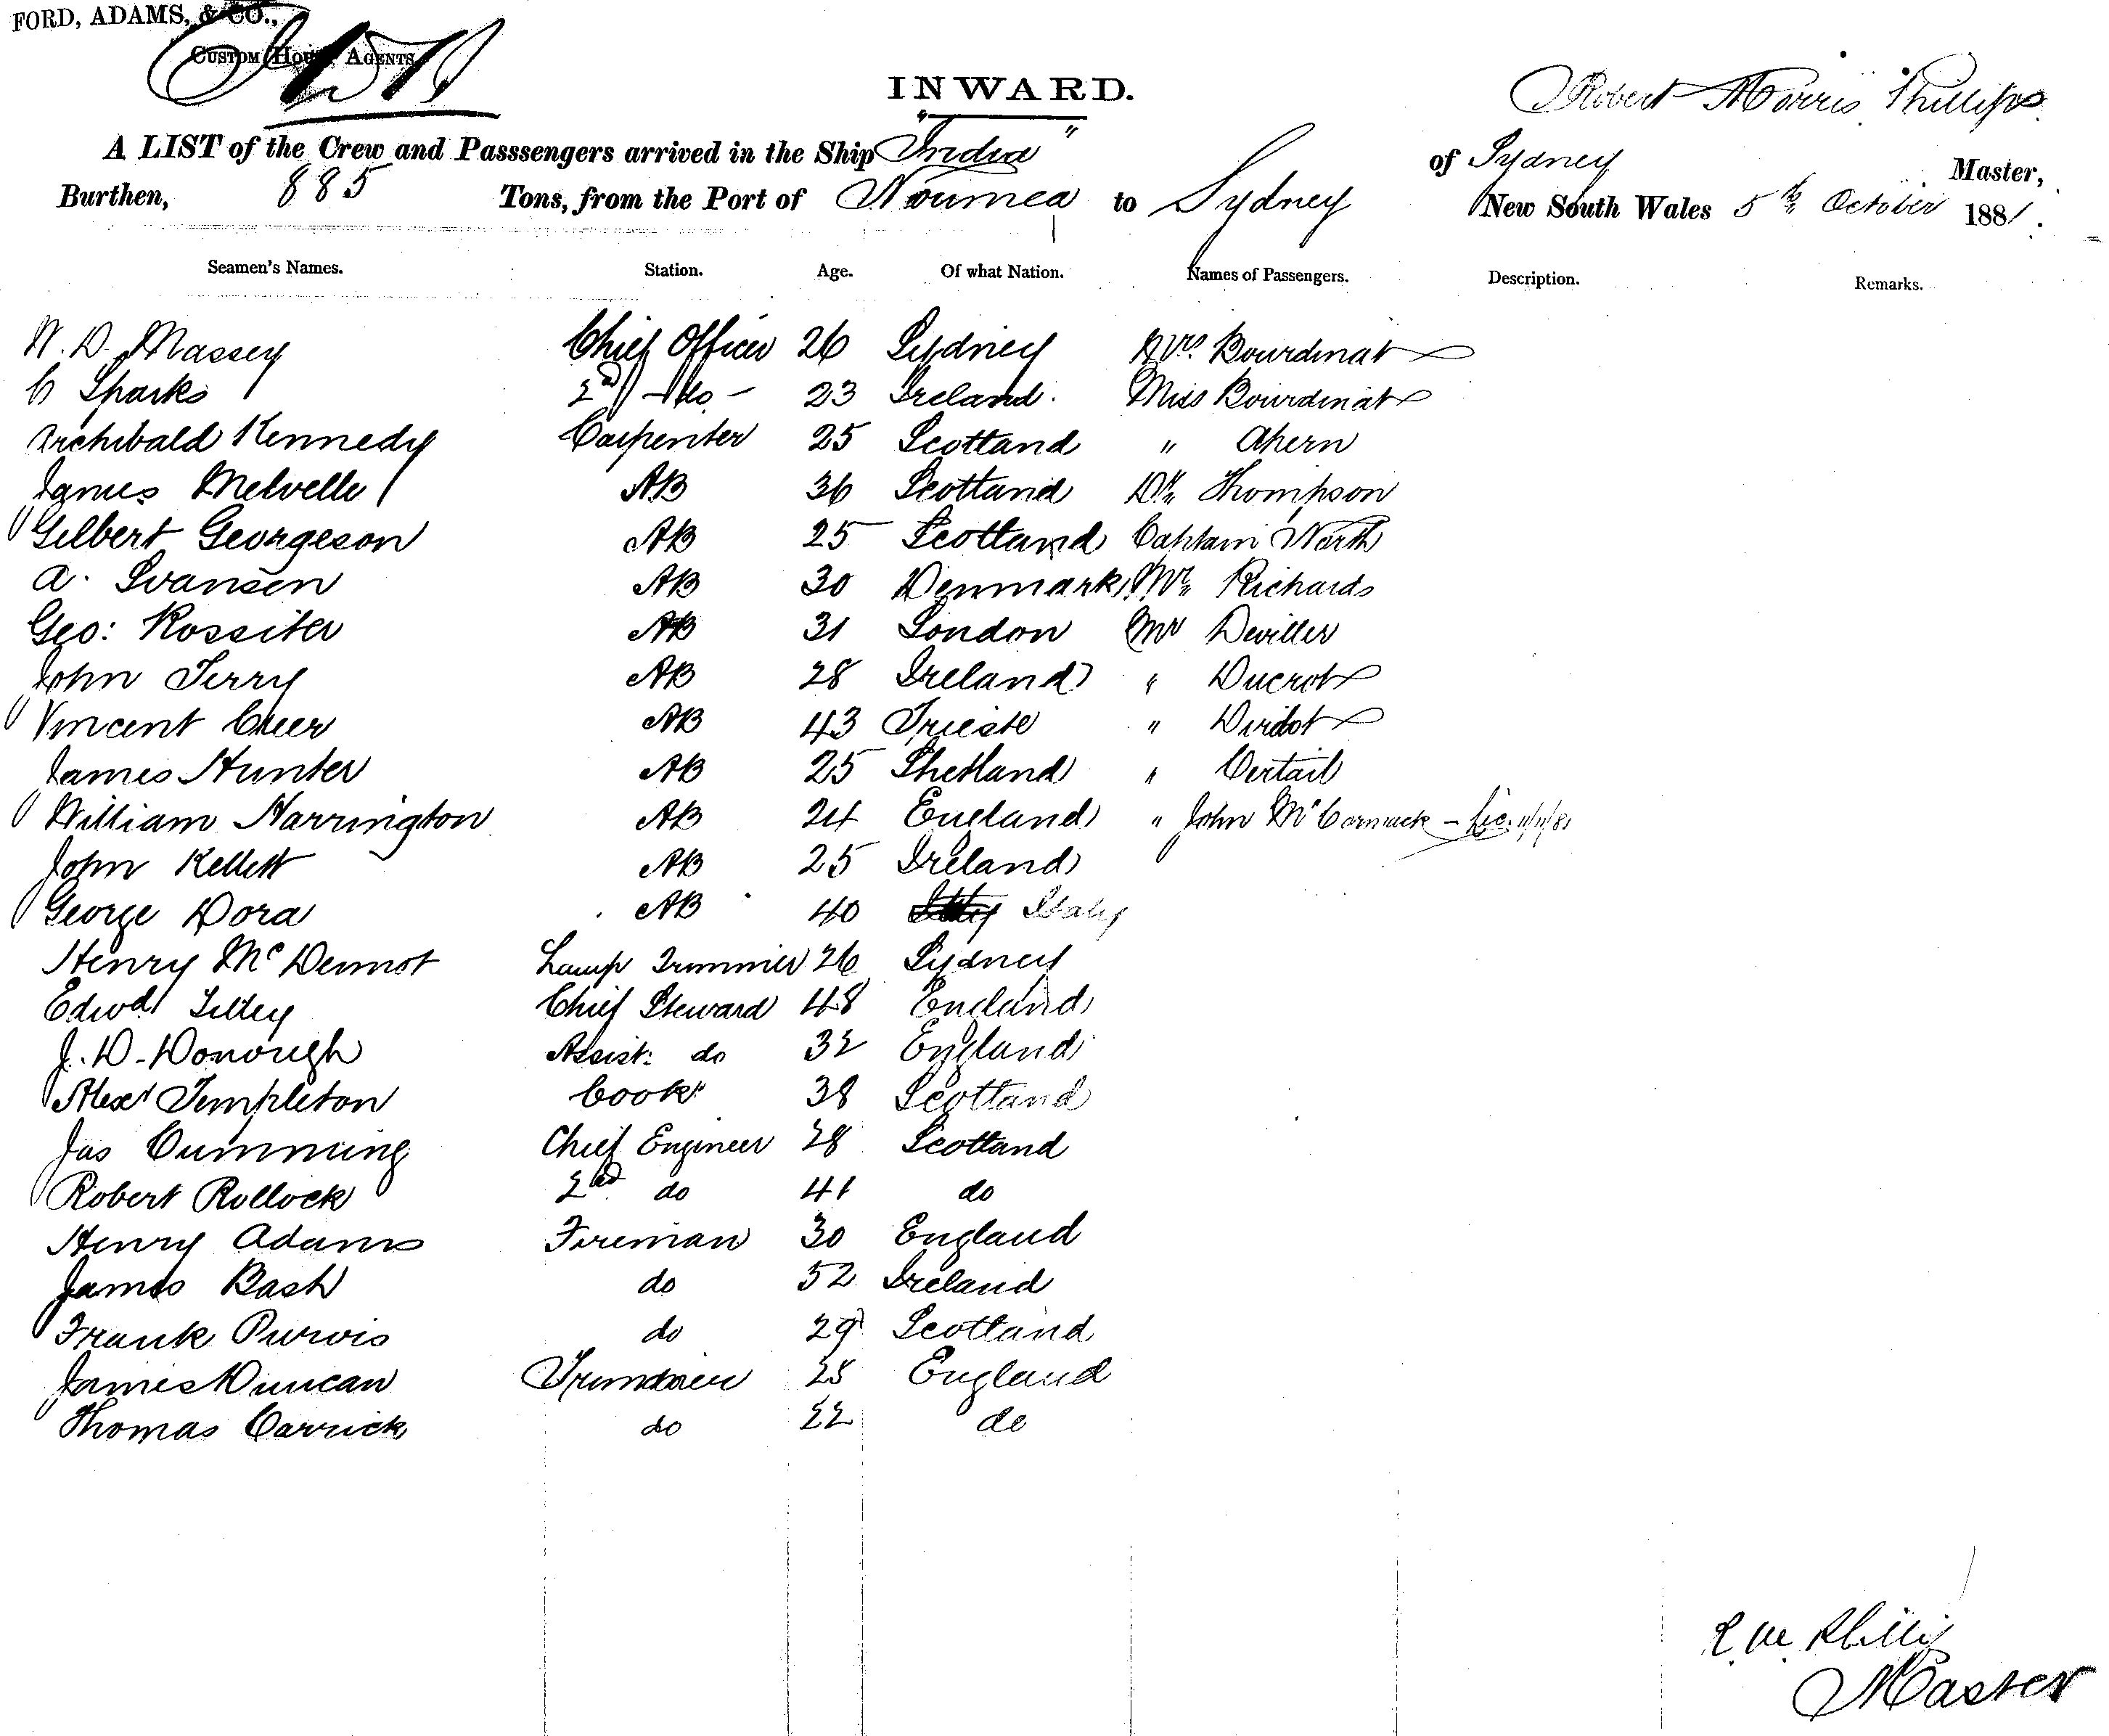 FORD, ADAMS, & CO.,
CUSTOM HOUSE AGENTS
INWARD.
Robert Morris Phillips
A LIST of the Crew and Passsengers arrived in the Ship "India" of Sydney Master,
Burthen, 885 Tons, from the Port of Noumea to Sydney New South Wales 5th October 1881.
Seamen's Names. Station. Age. Of what Nation. Names of Passengers. Description. Remarks.
W. D. Massey Chief Officer 26 Sydney Mrs Bourdinat
C Sparks 2nd - do - 23 Ireland. Miss Bourdinat
Archibald Kennedy Carpenter 25 Scotland " Ahern
James Melvelle AB 36 Scotland Dr Thompson
Gilbert Georgeson AB 25 Scotland Captain North
A. Svansen AB 30 Denmark Mr Richards
Geo: Rossiter AB 31 London Mr Deviller
John Terry AB 28 Ireland " Ducrot
Vincent Cheer AB 43 Trieste " Dirdot
James Hunter AB 25 Shetland " Certail
William Harrington AB 24 England " John McCormack - Lic. 11/11/81
John Kellett AB 25 Ireland
George Dora AB 40 Italy
Henry McDermot Lamp Trimmer 26 Sydney
Edwd Tilley Chief Steward 48 England
J. D. Donough Assist: do 32 England
Alexr Templeton Cook 38 Scotland
Jas Cumming Chief Engineer 28 Scotland
Robert Rollock 2nd do 41 do
Henry Adams Fireman 30 England
James Bash do 52 Ireland
Frank Purvis do 29 Scotland
James Duncan Trimmer 25 England
Thomas Carrick do 22 do
R. M. Phillips
Master